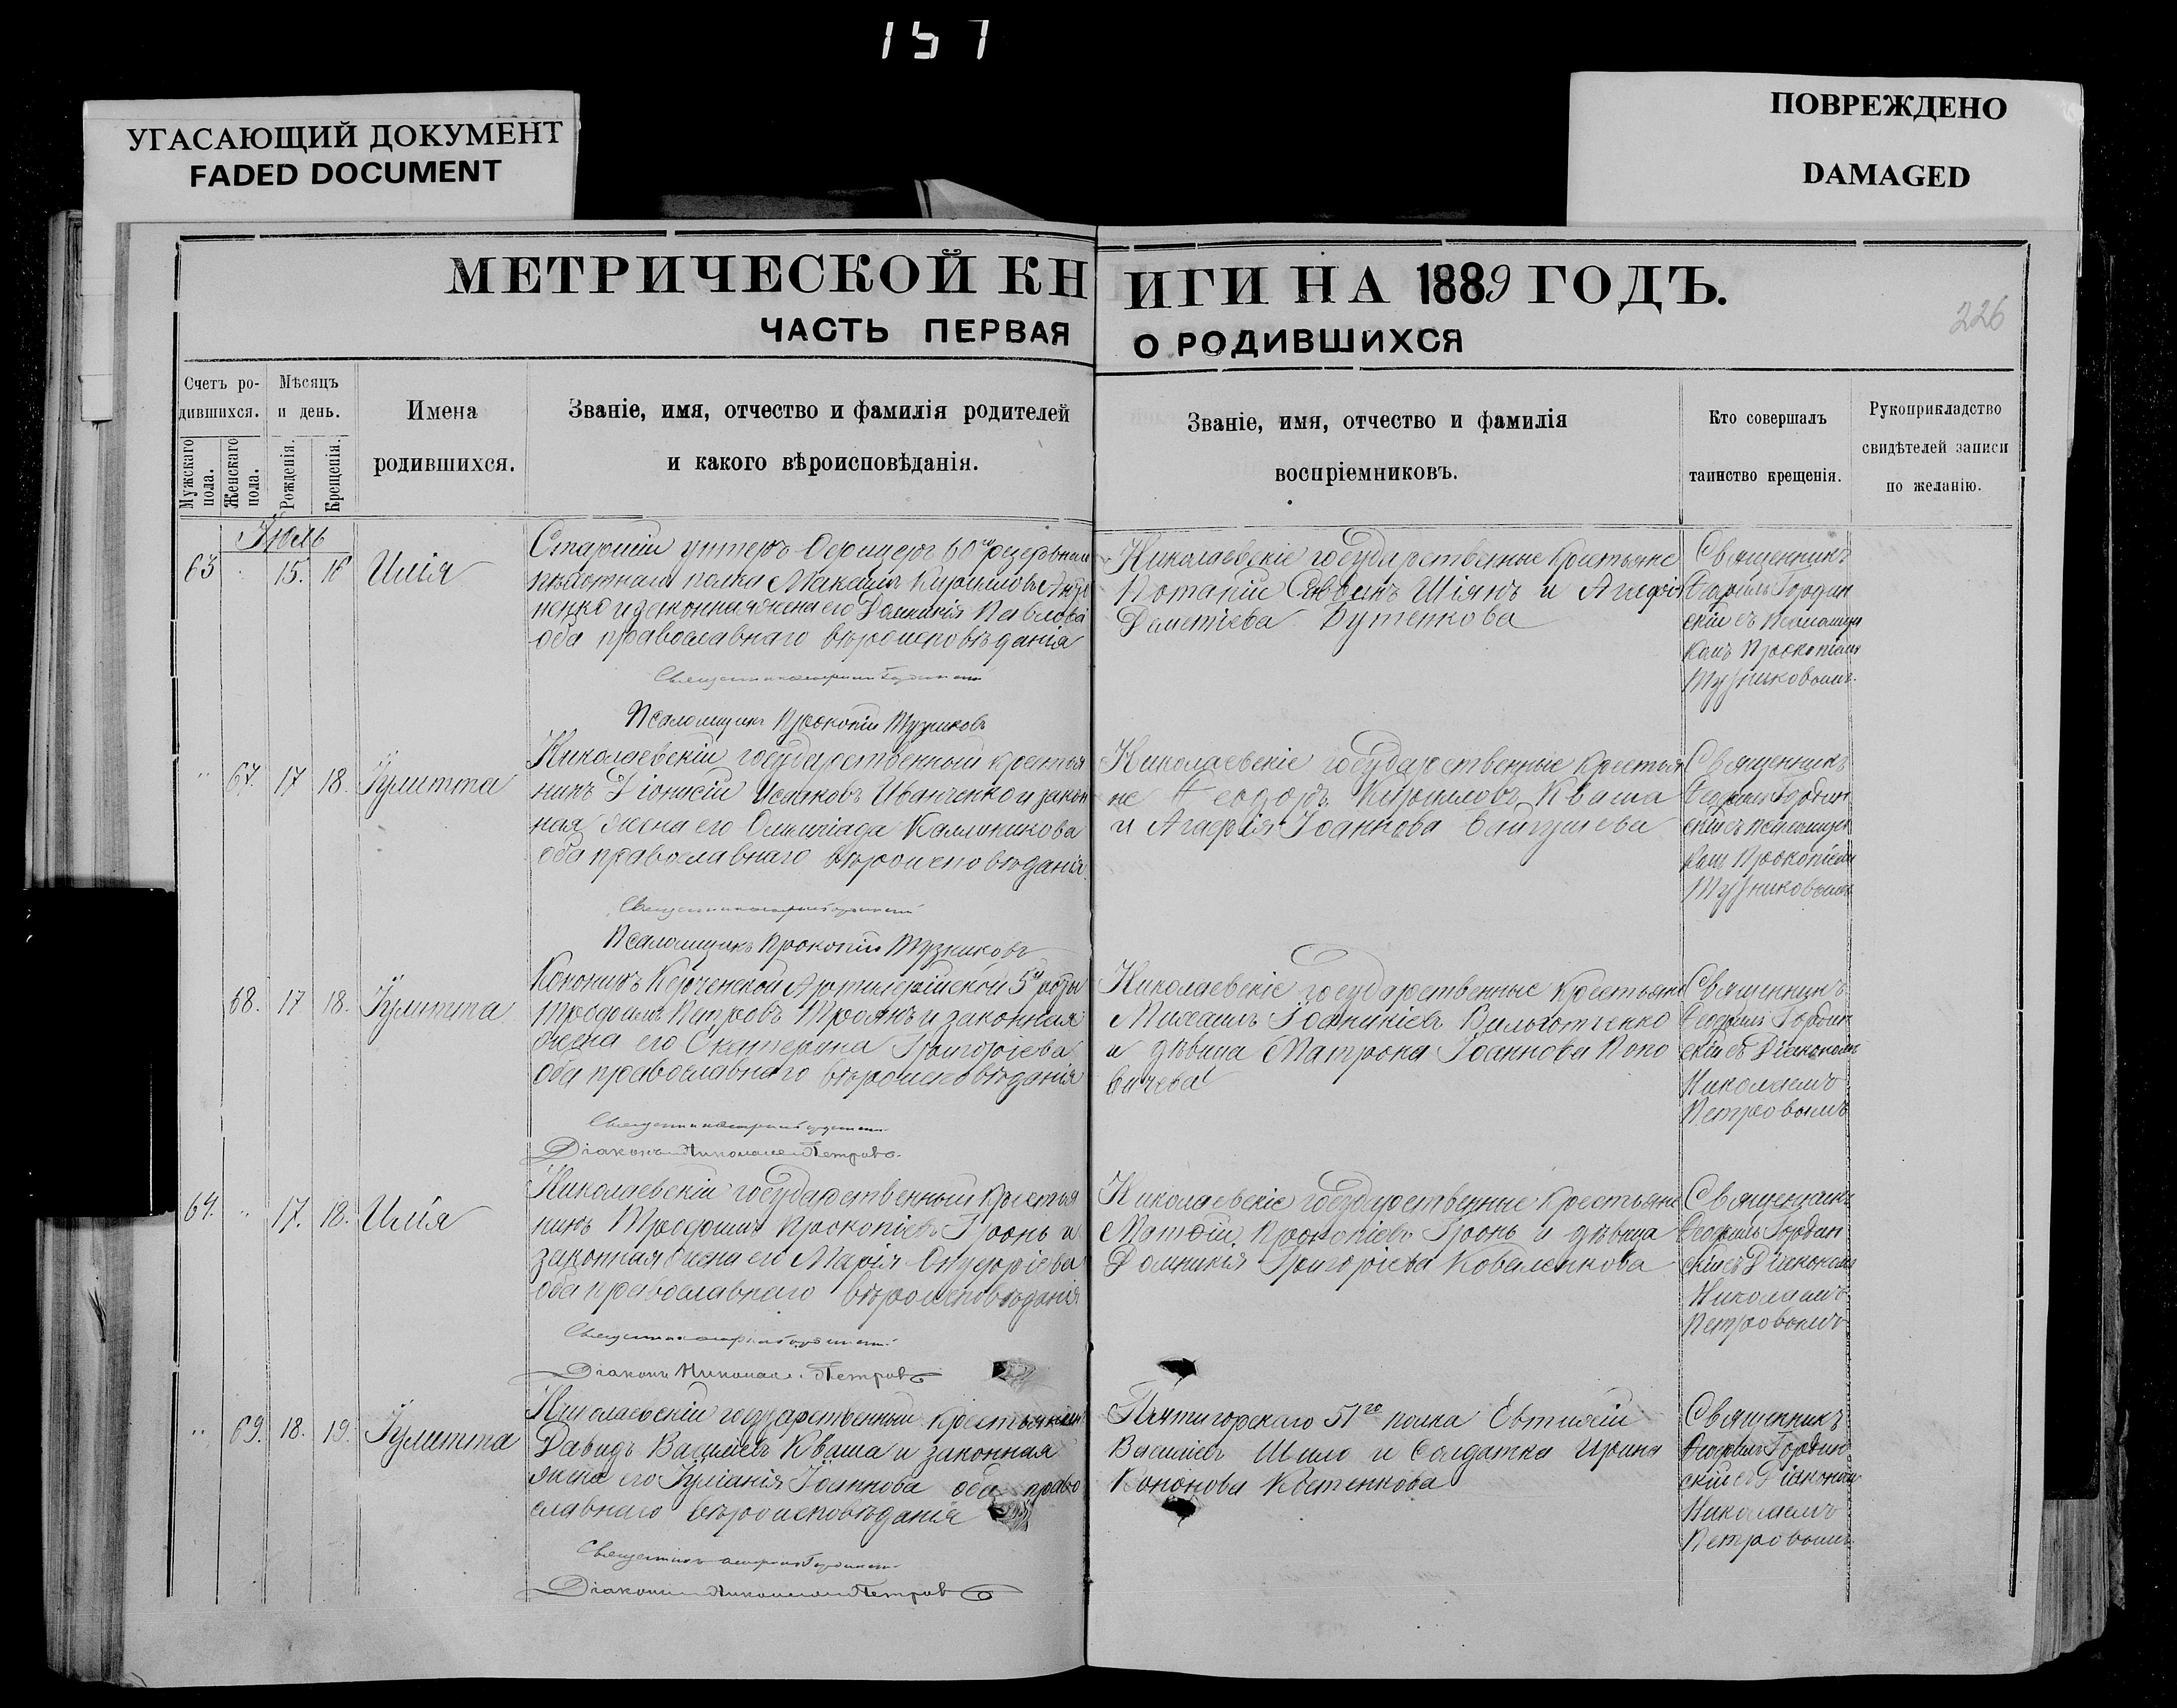 157
УГАСАЮЩИЙ ДОКУМЕНТ
FADED DOCUMENT
ПОВРЕЖДЕНО
DAMAGED
МЕТРИЧЕСКОЙ КНИГИ НА 1889 ГОДЪ.
226
ЧАСТЬ ПЕРВАЯ О РОДИВШИХСЯ
Счетъ ро-
дившихся.
Мужскаго пола.
Женскаго пола.
Мѣсяцъ
и день.
Рожденія.
Крещенія.
Имена
родившихся.
Званіе, имя, отчество и фамилія родителей
и какого вѣроисповѣданія.
Званіе, имя, отчество и фамилія
воспріемниковъ.
Кто совершалъ
таинство крещенія.
Рукоприкладство
свидѣтелей записи
по желанію.
Іюль
63 15. 16 Илія
Старшій унтеръ Офицеръ 60го
пѣхотнаго полка Максимъ Кирилловъ
и законная жена его Домникія Павлова
оба православнаго вѣроисповѣданія
Псаломщикъ Прокопій Тузниковъ
Николаевскіе государственные крестьяне
Потапій Саввинъ Шіянъ и Агафія
Дометіева Бутенкова
Священникъ
скій съ Псаломщи
комъ Прокопіемъ
Тузниковымъ.
67. 17 18. Іулитта
Николаевскій государственный крестья
нинъ Діонисій Исааковъ Иванченко и закон
ная жена его Олимпіада Каллиникова
оба православнаго вѣроисповѣданія.
Псаломщикъ Прокопій Тузниковъ
Николаевскіе государственные крестья
не Ѳеодоръ Кирилловъ Кваша
и Агафія Іоаннова
Священникъ
скій съ псаломщи
комъ Прокопіемъ
Тузниковымъ
68. 17 18. Іулитта
Керченской Артиллерійской 5й роты
Трофимъ Петровъ Троянъ и законная
жена его Екатерина Григоріева
оба православнаго вѣроисповѣданія
Діаконъ Николай Петровъ.
Николаевскіе государственные крестьяне
Михаилъ Іоанникіевъ
и дѣвица Матрона Іоаннова Попо
вичева
Священникъ
скій съ Діакономъ
Николаемъ
Петровымъ
64. 17. 18. Илія
Николаевскій государственный крестья
нинъ Трофимъ Прокопіевъ Гронь и
законная жена его Марія Онуфріева
оба православнаго вѣроисповѣданія
Діаконъ Николай Петровъ
Николаевскіе государственные крестьяне
Матѳій Прокопіевъ Гронь и дѣвица
Домникія Григоріева Коваленкова
Священникъ
скій съ Діакономъ
Николаемъ
Петровымъ
69. 18. 19. Іулитта
Николаевскій государственный крестьянинъ
Давидъ Василіевъ Кваша и законная
жена его Іуліанія Іоаннова оба право
славнаго вѣроисповѣданія
Діаконъ Николай Петровъ
Пятигорскаго 51го полка Евтихій
Василіевъ Шило и Солдатка Ирина
Кононова Костенкова
Священникъ
скій съ Діакономъ
Николаемъ
Петровымъ